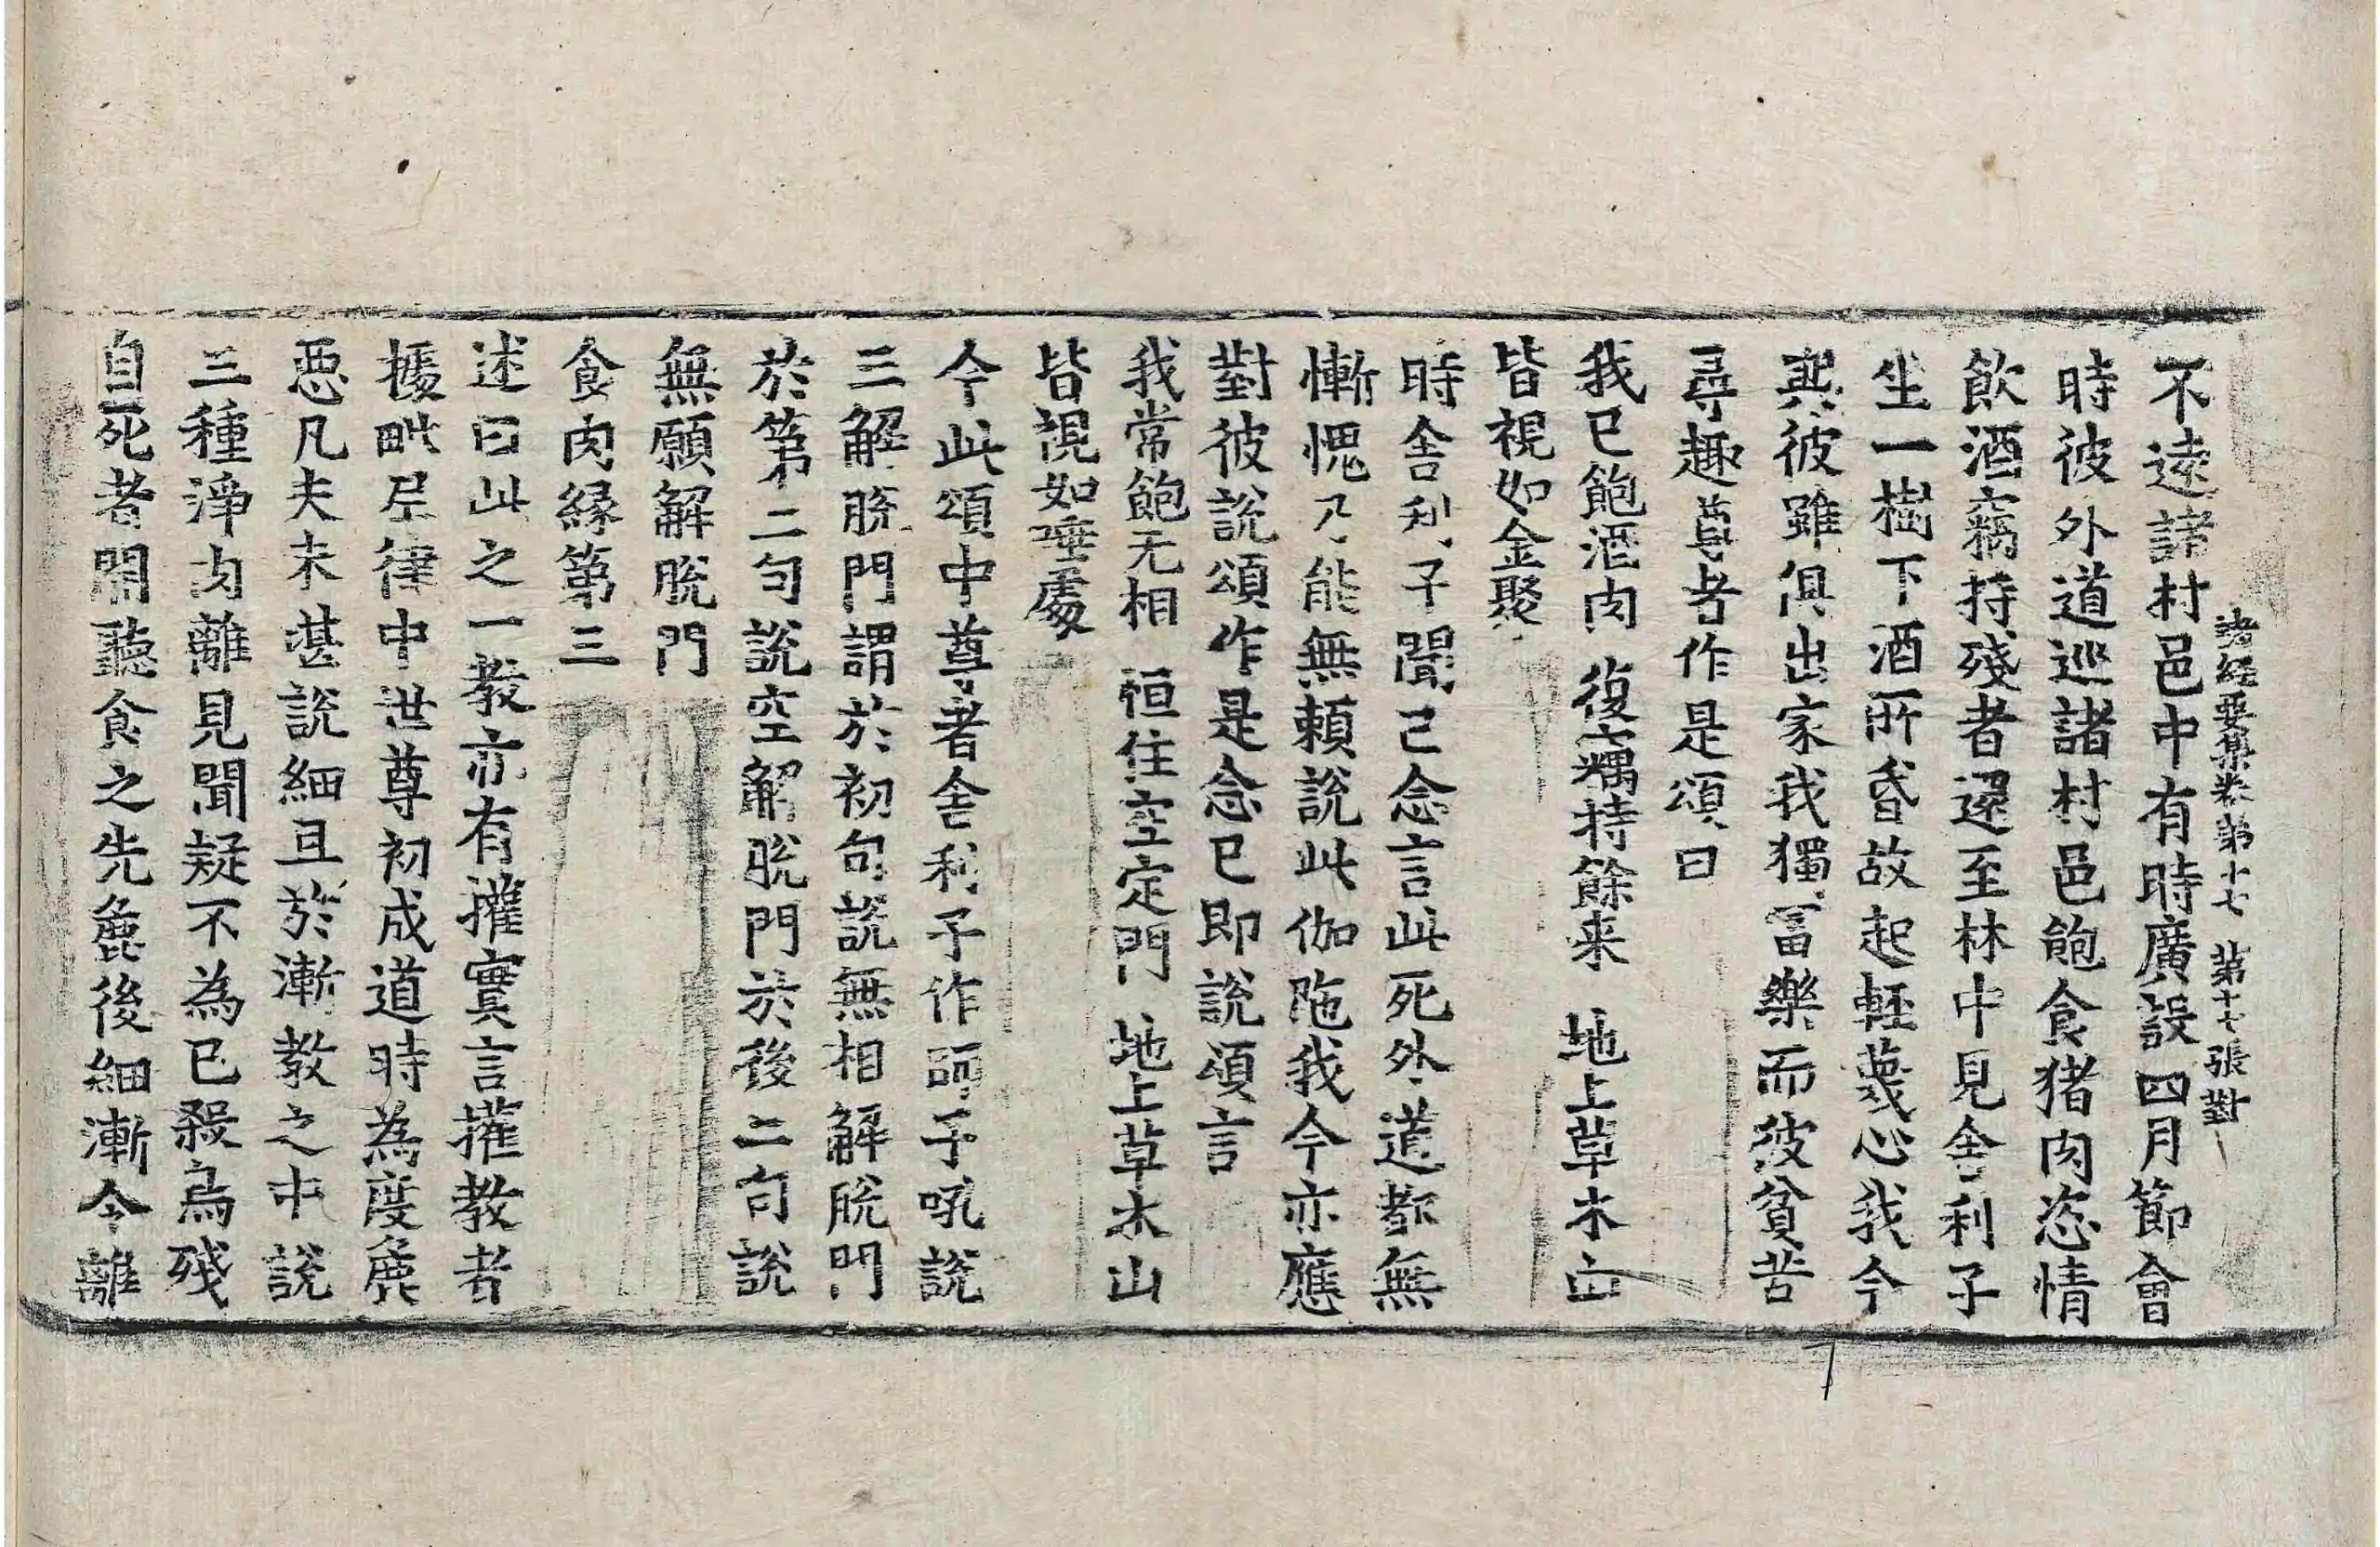 諸經要集卷第十七 第十七張對
不逺諸村邑中有時廣設四月節會
時彼外道巡諸村邑飽食猪肉恣情
飲酒竊持殘者還至林中見舍利子
坐一樹下酒所昏故起輕蔑心我今
與彼雖俱出家我獨冨樂而彼貧苦
尋趣尊者作是頌曰
我已飽酒肉 復竊持餘来 地上草木山
皆視如金聚
時舍利子聞已念言此死外道都無
慚愧乃能無賴說此伽陁我今亦應
對彼說頌作是念已即說頌言
我常飽无相 恒住空定門 地上草木山
皆視如唾處
今此頌中尊者舍利子作師子吼說
三解脫門謂於初句說無相解脫門
於第二句說空解脫門於後二句說
無願解脫門
食肉緣第三
述曰此之一教亦有權實言權教者
據毗尼律中世尊初成道時為度麁
惡凡夫未堪說細且於漸教之中說
三種淨肉離見聞疑不為已殺鳥殘
自死者開聽食之先麁後細漸令離